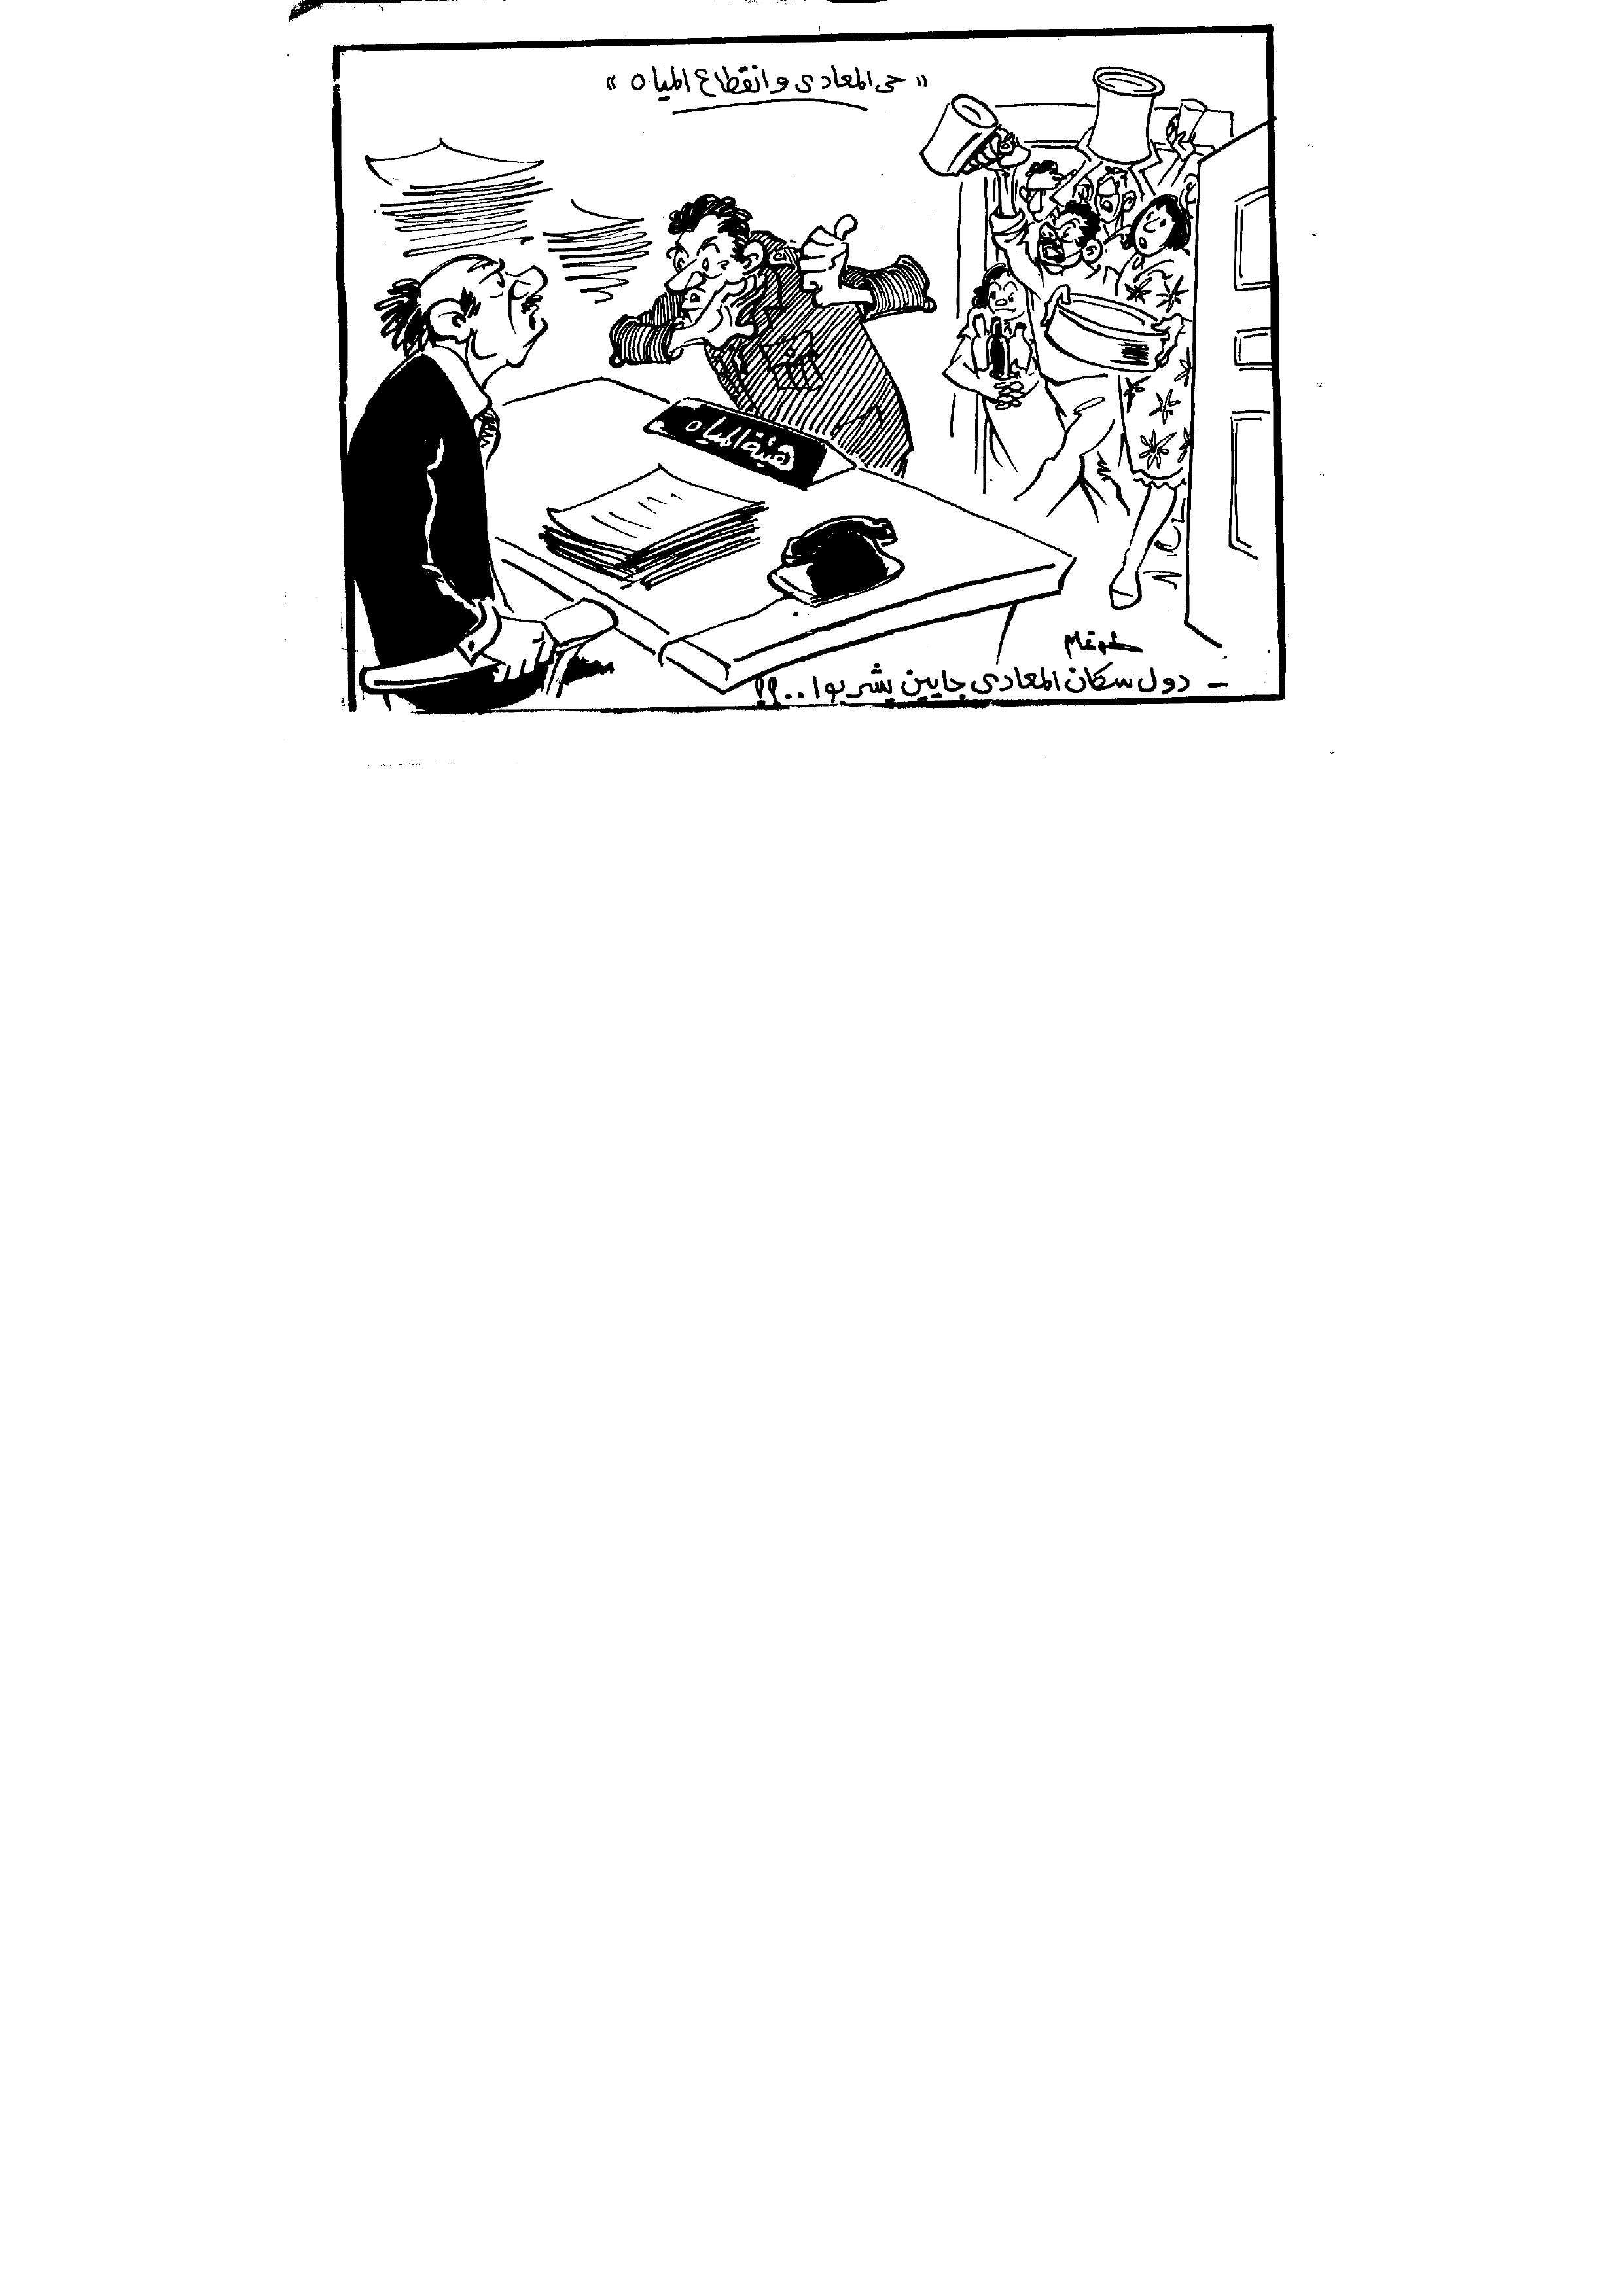 « حى المعادى وانقطاع المياه »
هيئة المياه
- دول سكان المعادى جايين يشربوا ..!!